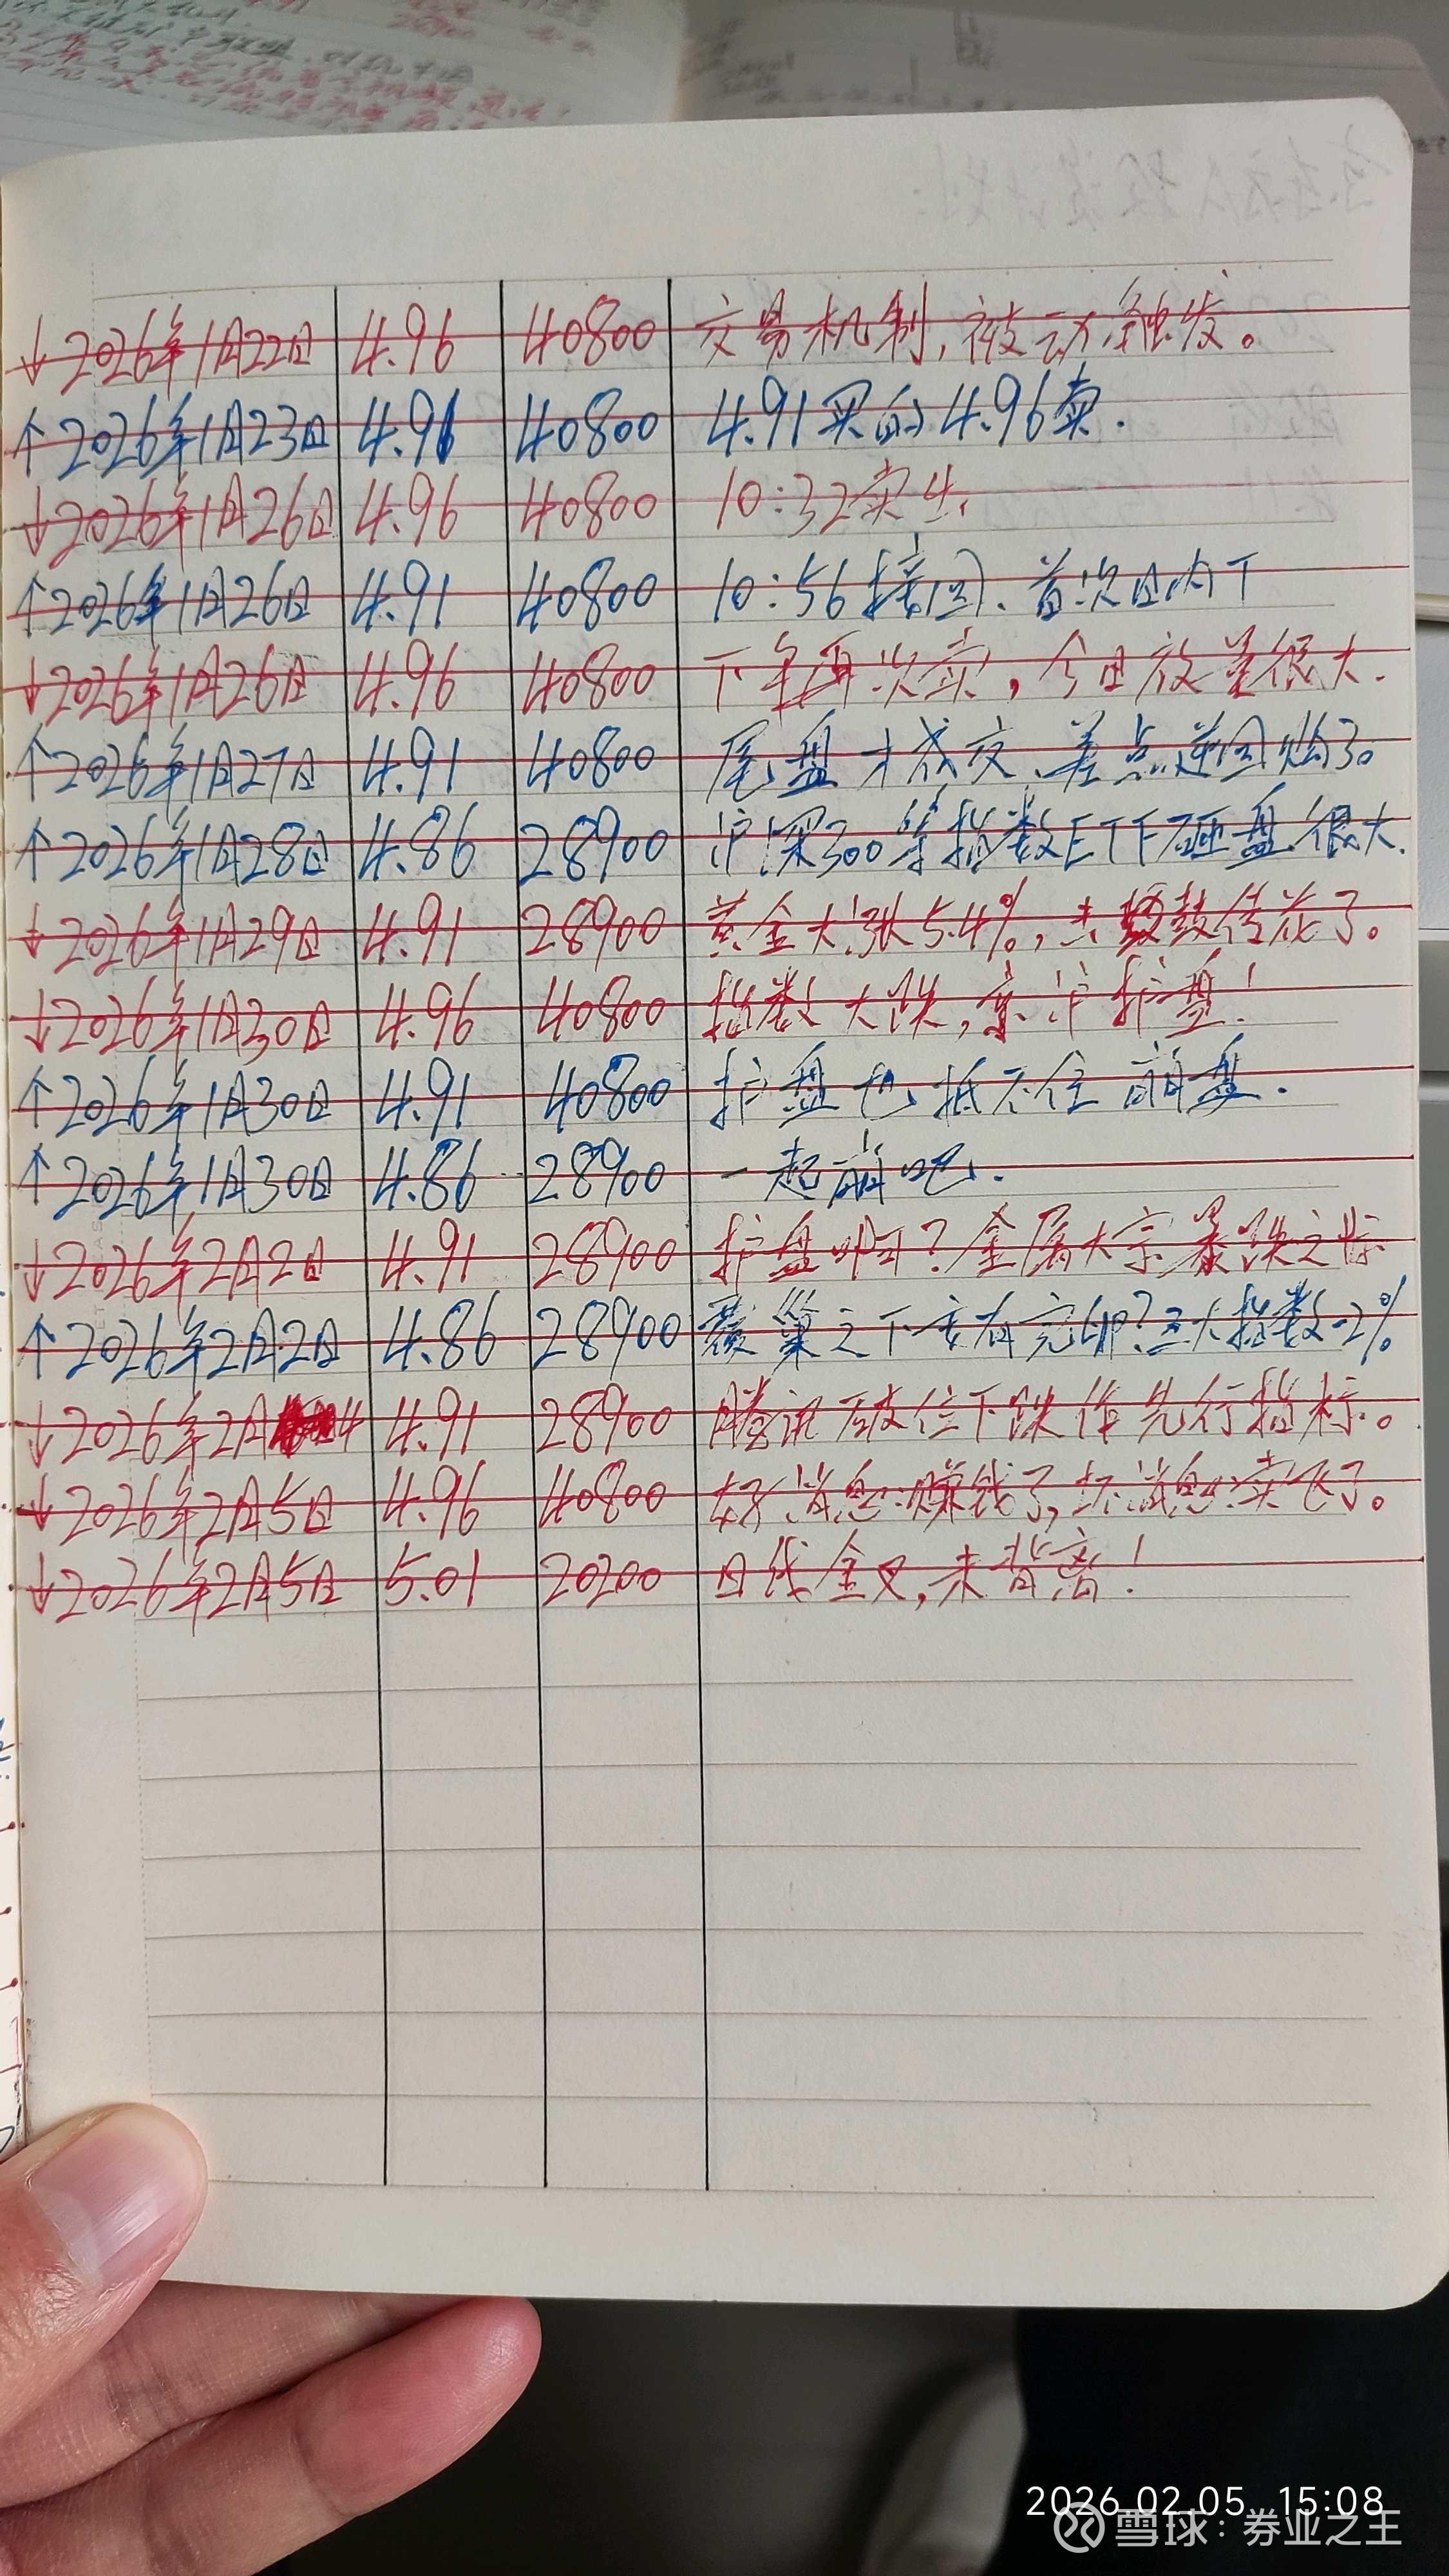 ↓2026年1月22日 4.96 40800 交易机制,被动触发。
↑2026年1月23日 4.91 40800 4.91买的4.96卖.
↓2026年1月26日 4.96 40800 10:32卖出.
↑2026年1月26日 4.91 40800 10:56接回、首次日内T
↓2026年1月26日 4.96 40800 下午再次卖,今日放量很大.
↑2026年1月27日 4.91 40800 尾盘才成交、差点逆回购了。
↑2026年1月28日 4.86 28900 沪深300等指数ETF砸盘很大.
↓2026年1月29日 4.91 28900 黄金大涨5.4%,击鼓传花了。
↓2026年1月30日 4.96 40800 指数大跌,京沪护盘!
↑2026年1月30日 4.91 40800 护盘也抵不住崩盘.
↑2026年1月30日 4.86 28900 一起崩吧.
↓2026年2月2日 4.91 28900 护盘呀?金属大宗暴跌之惊
↑2026年2月2日 4.86 28900 覆巢之下安有完卵?三大指数-2%
↓2026年2月4 4.91 28900 腾讯破位下跌作先行指标。
↓2026年2月5日 4.96 40800 好消息:赚钱了,坏消息:卖飞了。
↓2026年2月5日 5.01 20200 日线金叉,未背离!
2026.02.05 15:08
雪球:券业之主